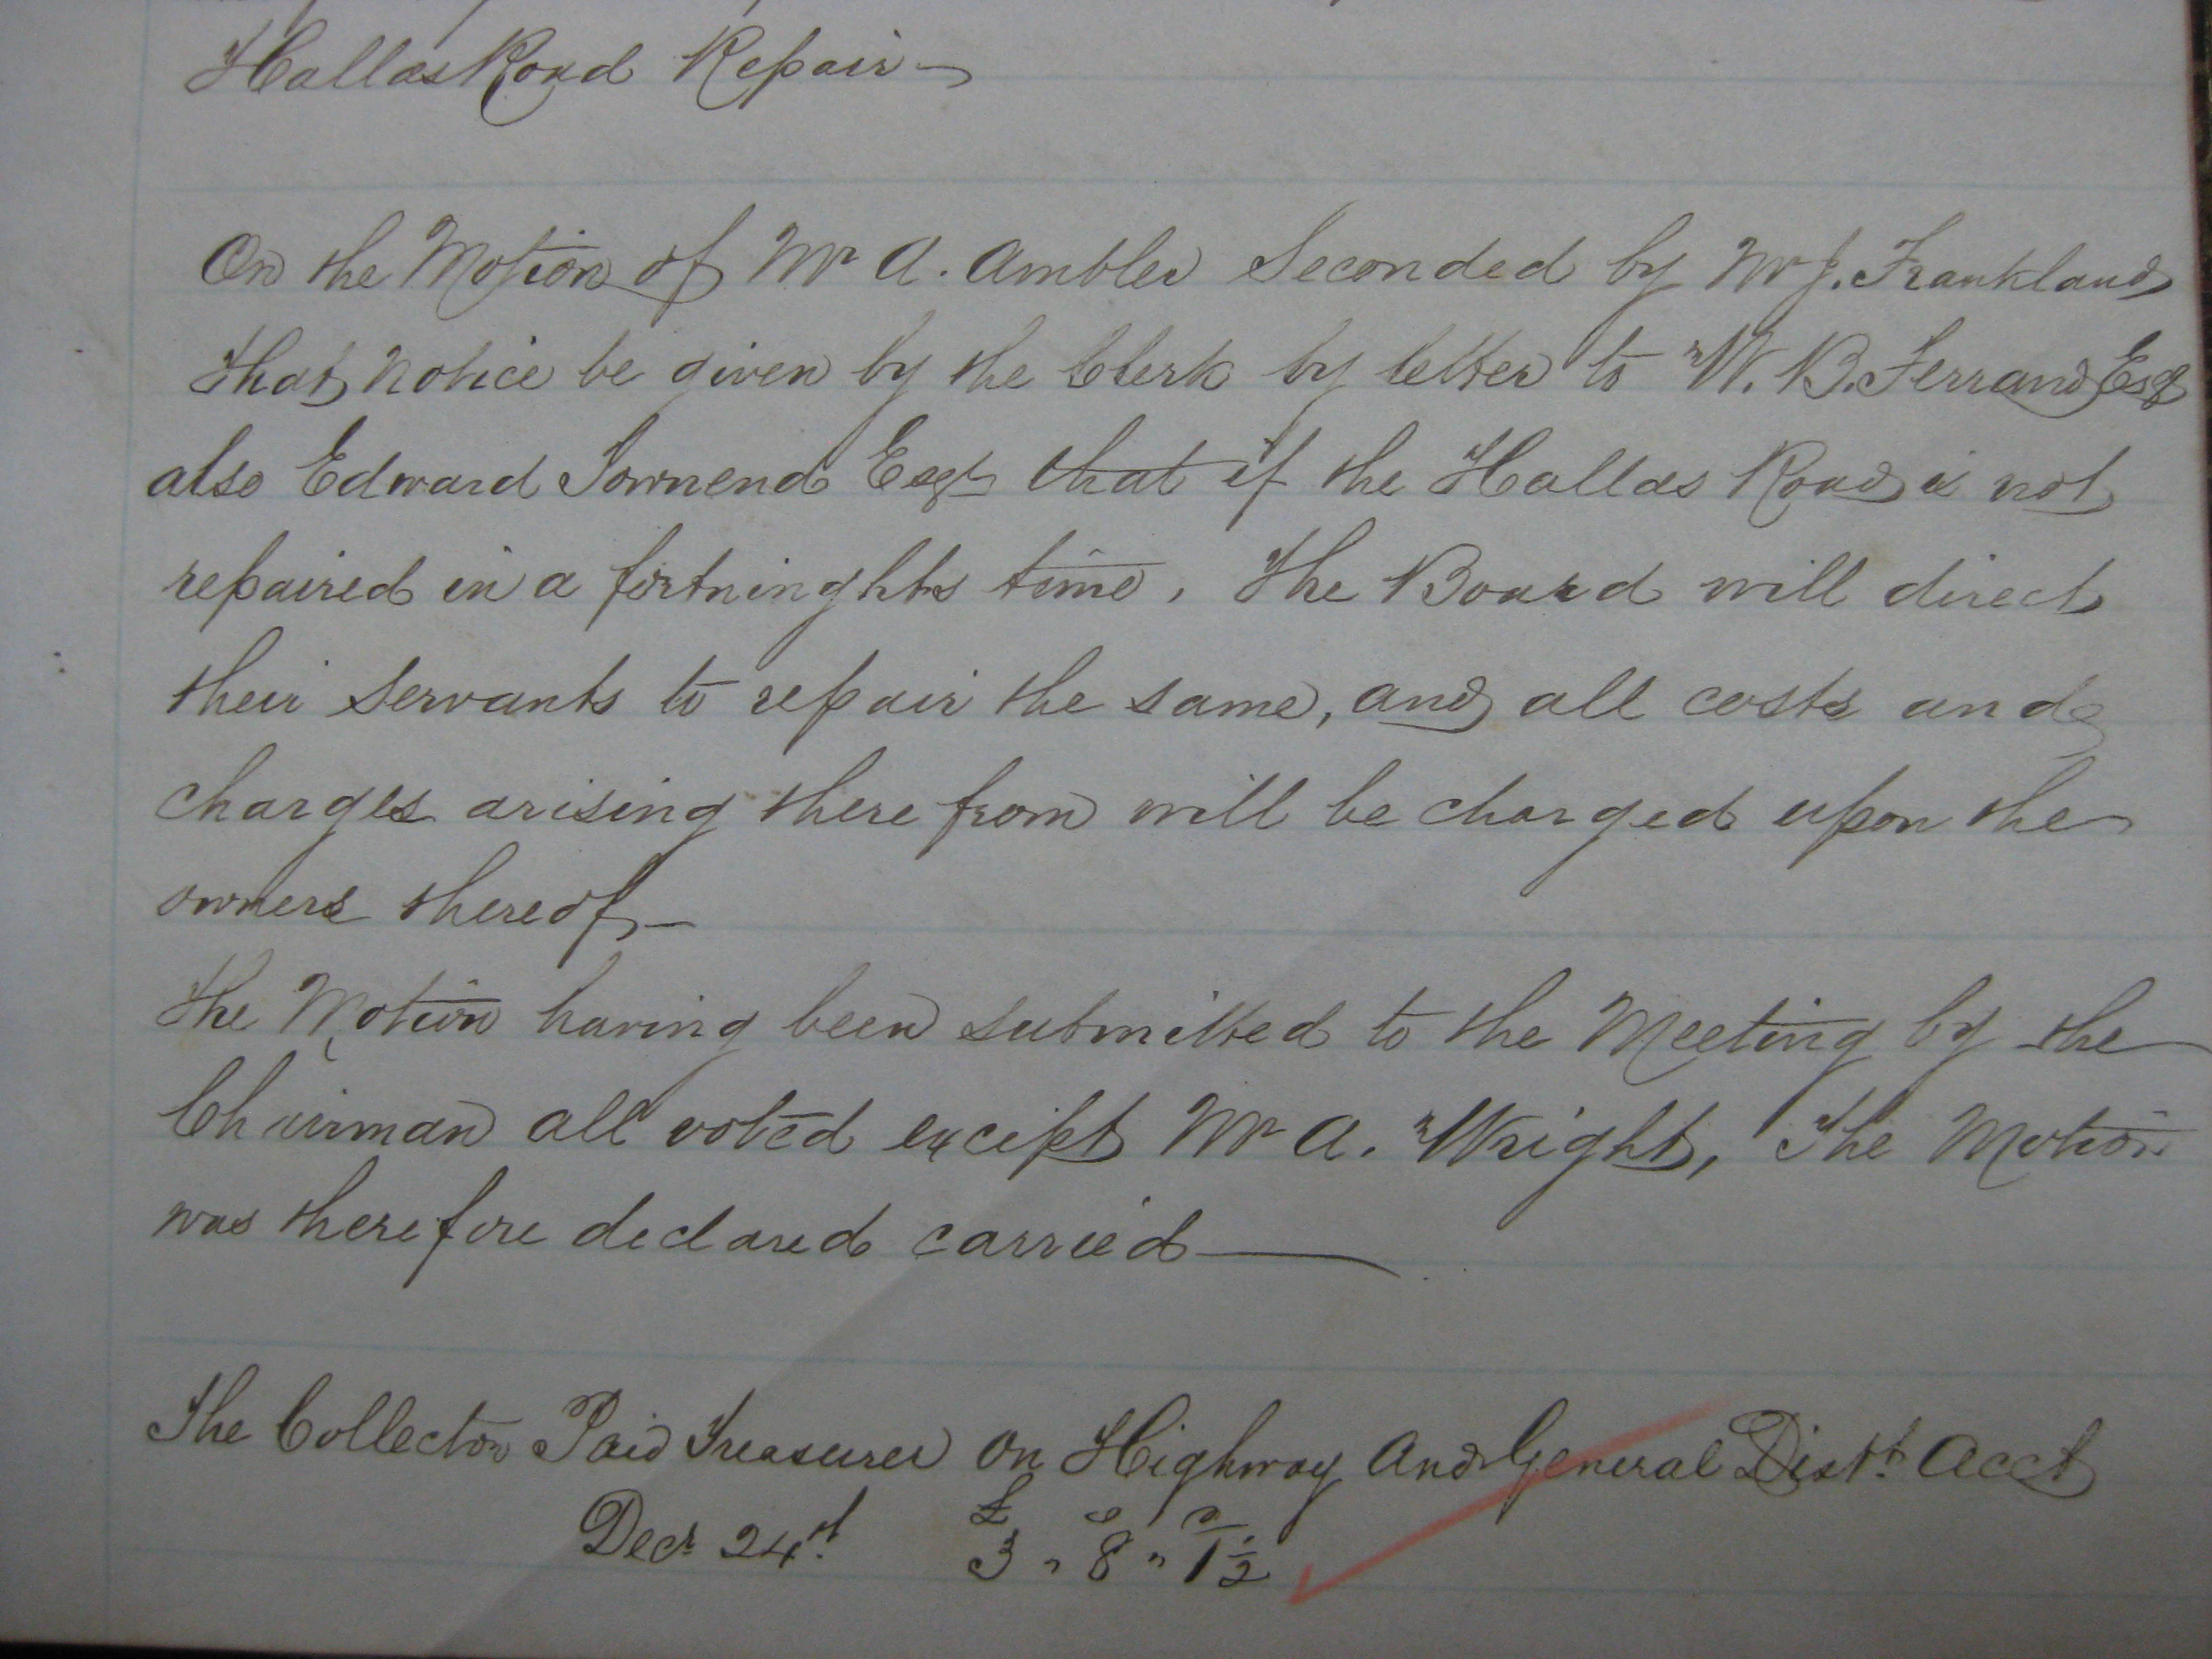 Hallas Road Repair
On the Motion of Mr A. Ambler Seconded by Mr J. Frankland
that notice be given by the Clerk by letter to W. B. Ferrand Esq
also Edward Townend Esqr that if the Hallas Road is not
repaired in a fortninghts time, the Board will direct
their servants to repair the same, and all costs and
charges arising there from will be charged upon the
owners thereof—
The Motion having been submitted to the Meeting by the
Chairman all voted except Mr A. Wright, The Motion
was therefore declared carried—
The Collector Paid Treasurer on Highway And General Distt. Acct
£ s d
Decr 24th 3 " 8 " 1½